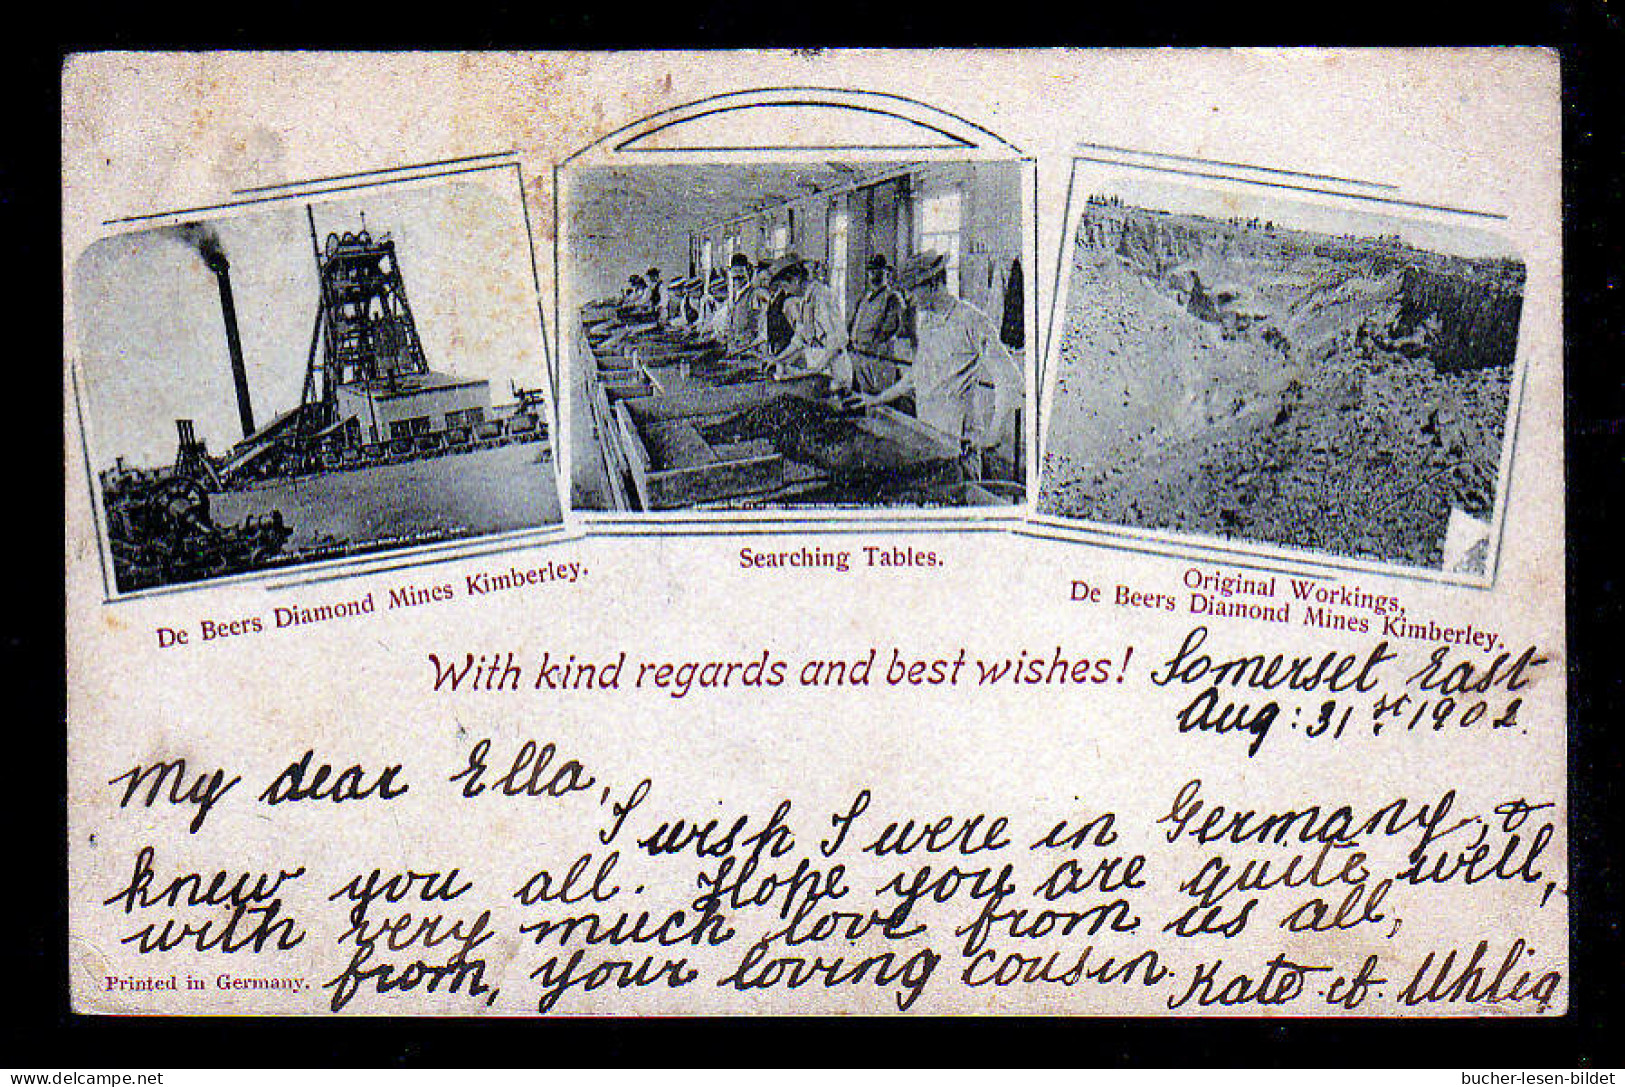 De Beers Diamond Mines Kimberley.
Searching Tables.
Original Workings,
De Beers Diamond Mines Kimberley.
With kind regards and best wishes!
Somerset East
Aug: 31st 1902.
My dear Ella,
I wish I were in Germany, &
knew you all. Hope you are quite well,
with very much love from us all,
from, your loving cousin.
Kate Uhlig
Printed in Germany.
delcampe.net
bucher-lesen-bildet